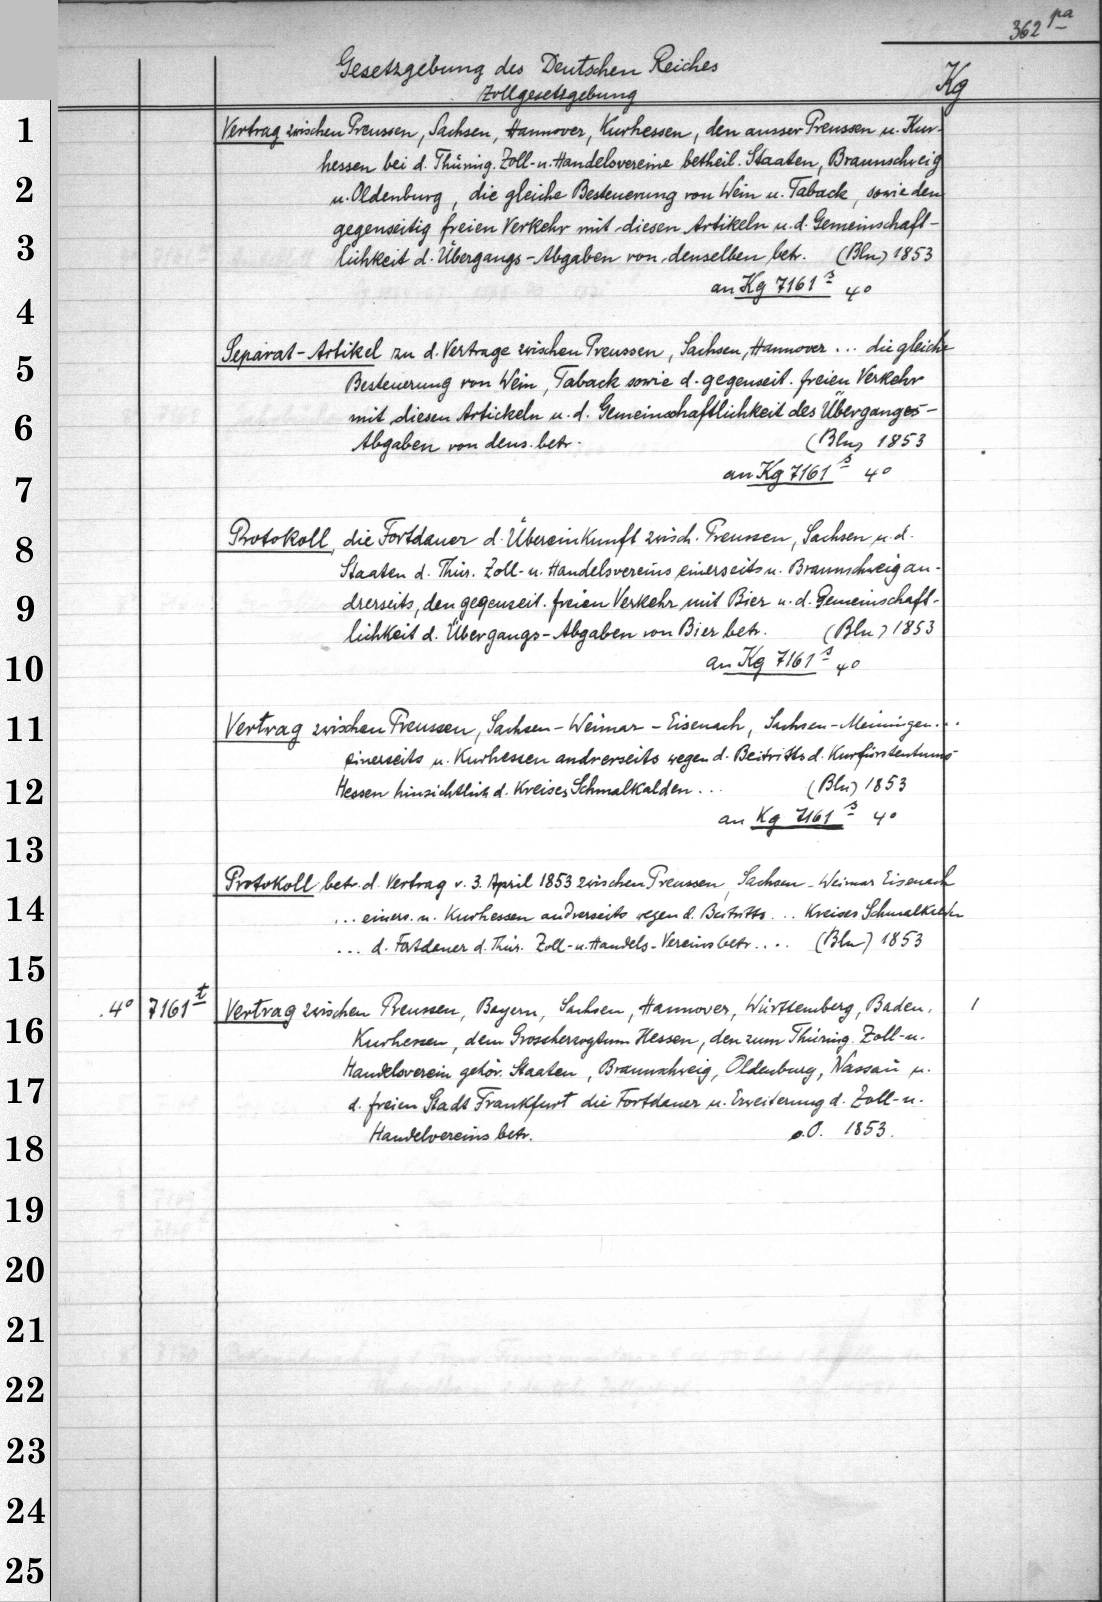 362 pa
Gesetzgebung des Deutschen Reiches
Zollgesetzgebung
Kg
1
Vertrag zwischen Preussen, Sachsen, Hannover, Kurhessen, den ausser Preussen u. Kur-
hessen bei d. Thüring. Zoll- u. Handelsvereine betheil. Staaten, Braunschweig
2
u. Oldenburg, die gleiche Besteuerung von Wein u. Taback, sowie den
gegenseitig freien Verkehr mit diesen Artikeln u. d. Gemeinschaft-
3
lichkeit d. Übergangs-Abgaben von denselben betr. (Bln) 1853
an Kg 7161 s 4°
4
Separat-Artikel zu d. Vertrage zwischen Preussen, Sachsen, Hannover ... die gleiche
5
Besteuerung von Wein, Taback sowie d. gegenseit. freien Verkehr
mit diesen Artickeln u. d. Gemeinschaftlichkeit des Überganges-
6
Abgaben von dens. betr. (Bln) 1853
an Kg 7161 s 4°
7
Protokoll, die Fortdauer d. Übereinkunft zwisch. Preussen, Sachsen u. d.
8
Staaten d. Thür. Zoll- u. Handelsvereins einerseits u. Braunschweig an-
9
drerseits, den gegenseit. freien Verkehr mit Bier u. d. Gemeinschaft-
lichkeit d. Übergangs-Abgaben von Bier betr. (Bln) 1853
10
an Kg 7161 s 4°
11
Vertrag zwischen Preussen, Sachsen-Weimar-Eisenach, Sachsen-Meiningen...
einerseits u. Kurhessen andrerseits wegen d. Beitritts d. Kurfürstentums
12
Hessen hinsichtlich d. Kreises Schmalkalden ... (Bln) 1853
an Kg 7161 s 4°
13
Protokoll betr. d. Vertrag v. 3. April 1853 zwischen Preussen, Sachsen-Weimar Eisenach
14
... einers. u. Kurhessen andrerseits wegen d. Beitritts ... Kreises Schmalkalden
... d. Fortdauer d. Thür. Zoll- u. Handels-Vereins betr. ... (Bln) 1853
15
4° 7161 t Vertrag zwischen Preussen, Bayern, Sachsen, Hannover, Württemberg, Baden, 1
16
Kurhessen, dem Grossherzogtum Hessen, den zum Thüring. Zoll- u.
Handelsverein gehör. Staaten, Braunschweig, Oldenburg, Nassau u.
17
d. freien Stadt Frankfurt die Fortdauer u. Erweiterung d. Zoll- u.
18
Handelvereins betr. o.O. 1853.
19
20
21
22
23
24
25